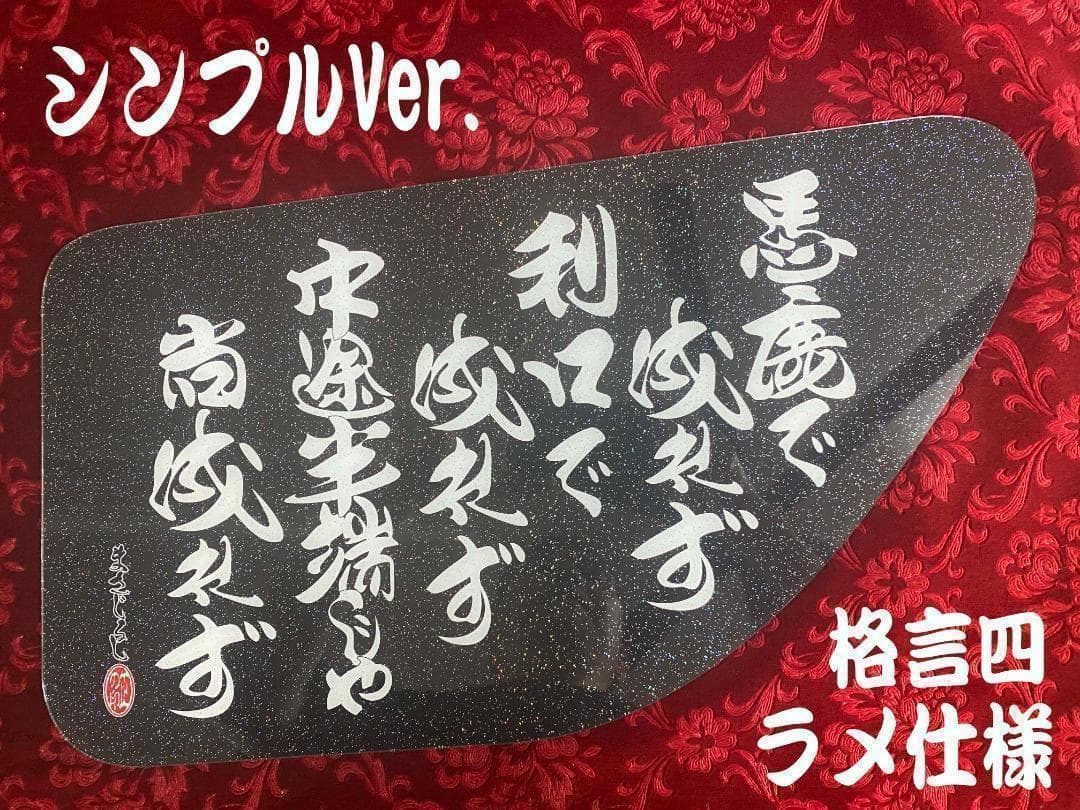 シンプルVer.
馬鹿で
成れず
利口で
成れず
中途半端じゃ
尚成れず
格言四
ラメ仕様